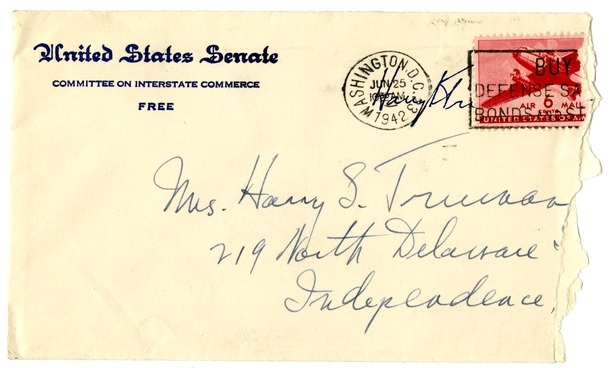 United States Senate
COMMITTEE ON INTERSTATE COMMERCE
FREE
WASHINGTON, D.C.
JUN 25
1942
Harry
BUY
DEFENSE SA
BONDS
ST
AIR 6 MAIL
CENTS
UNITED STATES OF AM
Mrs. Harry S. Truman
219 North Delaware
Independence,